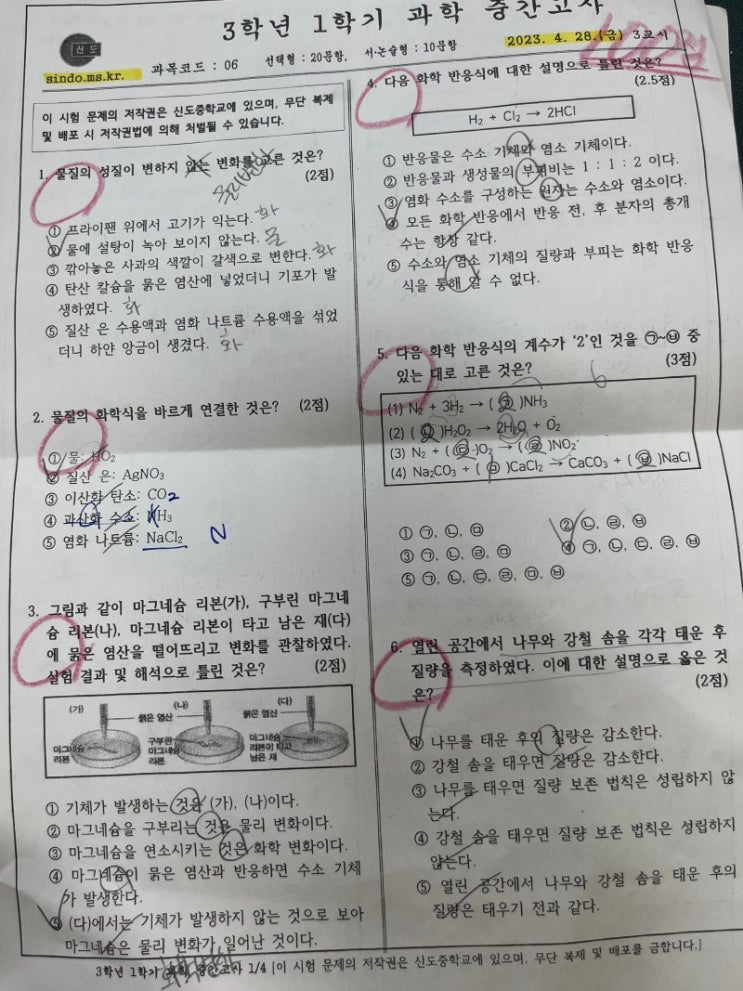 3학년 1학기 과학 중간고사
신도
sindo.ms.kr.
과목코드 : 06
선택형 : 20문항, 서·논술형 : 10문항
2023. 4. 28.(금) 3교시
100점
이 시험 문제의 저작권은 신도중학교에 있으며, 무단 복제
및 배포 시 저작권법에 의해 처벌될 수 있습니다.
1. 물질의 성질이 변하지 않는 변화를 고른 것은?
(2점)
물리변화
① 프라이팬 위에서 고기가 익는다. 화
② 물에 설탕이 녹아 보이지 않는다. 물
③ 깎아놓은 사과의 색깔이 갈색으로 변한다. 화
④ 탄산 칼슘을 묽은 염산에 넣었더니 기포가 발
생하였다. 화
⑤ 질산 은 수용액과 염화 나트륨 수용액을 섞었
더니 하얀 앙금이 생겼다. 화
2. 물질의 화학식을 바르게 연결한 것은? (2점)
① 물: HO₂
② 질산 은: AgNO₃
③ 이산화 탄소: CO₂
④ 과산화 수소: NH₃
⑤ 염화 나트륨: NaCl₂
N
3. 그림과 같이 마그네슘 리본(가), 구부린 마그네
슘 리본(나), 마그네슘 리본이 타고 남은 재(다)
에 묽은 염산을 떨어뜨리고 변화를 관찰하였다.
실험 결과 및 해석으로 틀린 것은? (2점)
(가) (나) (다)
묽은 염산 묽은 염산
마그네슘
리본
구부린
마그네슘
리본
마그네슘
리본이 타고
남은 재
① 기체가 발생하는 것은 (가), (나)이다.
② 마그네슘을 구부리는 것은 물리 변화이다.
③ 마그네슘을 연소시키는 것은 화학 변화이다.
④ 마그네슘이 묽은 염산과 반응하면 수소 기체
가 발생한다.
⑤ (다)에서는 기체가 발생하지 않는 것으로 보아
마그네슘은 물리 변화가 일어난 것이다.
화학변화
4. 다음 화학 반응식에 대한 설명으로 틀린 것은?
(2.5점)
H₂ + Cl₂ → 2HCl
① 반응물은 수소 기체와 염소 기체이다.
② 반응물과 생성물의 부피비는 1 : 1 : 2 이다.
③ 염화 수소를 구성하는 원자는 수소와 염소이다.
④ 모든 화학 반응에서 반응 전, 후 분자의 총개
수는 항상 같다.
⑤ 수소와 염소 기체의 질량과 부피는 화학 반응
식을 통해 알 수 없다.
5. 다음 화학 반응식의 계수가 ‘2’인 것을 ㉠~㉥ 중
있는 대로 고른 것은?
(3점)
6
(1) N₂ + 3H₂ → ( ㉠ )NH₃
(2) ( ㉡ )H₂O₂ → 2H₂O + O₂
(3) N₂ + ( ㉢ )O₂ → ( ㉣ )NO₂
(4) Na₂CO₃ + ( ㉤ )CaCl₂ → CaCO₃ + ( ㉥ )NaCl
① ㉠, ㉡, ㉤ ② ㉡, ㉣, ㉥
③ ㉠, ㉡, ㉣, ㉤ ④ ㉠, ㉡, ㉢, ㉣, ㉥
⑤ ㉠, ㉡, ㉢, ㉣, ㉤, ㉥
6. 열린 공간에서 나무와 강철 솜을 각각 태운 후
질량을 측정하였다. 이에 대한 설명으로 옳은 것
은?
(2점)
① 나무를 태운 후의 질량은 감소한다.
② 강철 솜을 태우면 질량은 감소한다.
③ 나무를 태우면 질량 보존 법칙은 성립하지 않
는다.
④ 강철 솜을 태우면 질량 보존 법칙은 성립하지
않는다.
⑤ 열린 공간에서 나무와 강철 솜을 태운 후의
질량은 태우기 전과 같다.
3학년 1학기 과학 중간고사 1/4 [이 시험 문제의 저작권은 신도중학교에 있으며, 무단 복제 및 배포를 금합니다.]